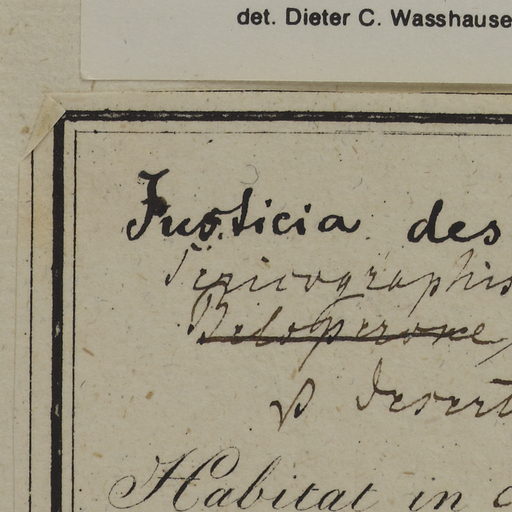 det. Dieter C. Wasshause
Justicia des
Sericographis
Beloperone,
β desert
Habitat in